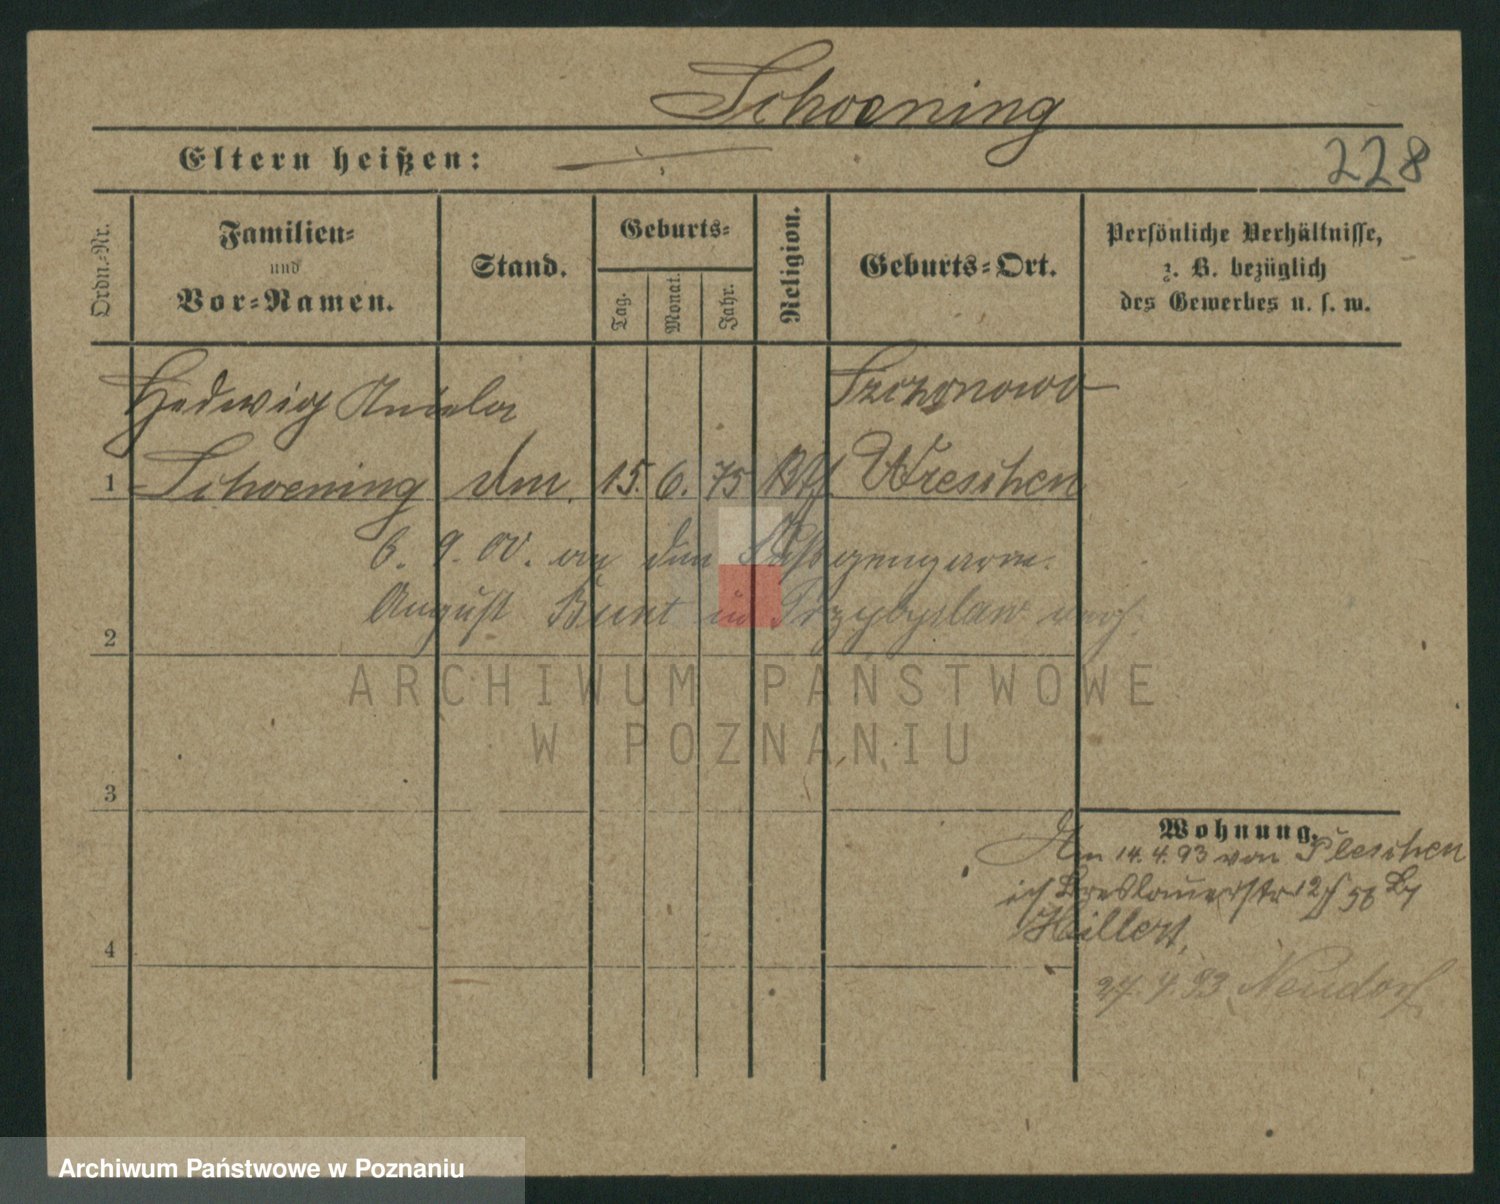 Schoening
Eltern heißen:
228
Ordn.-Nr.
Familien-
und
Vor-Namen.
Stand.
Geburts-
Tag.
Monat.
Jahr.
Religion.
Geburts-Ort.
Persönliche Verhältnisse,
z. B. bezüglich
des Gewerbes u. s. w.
Hedwig Aniela
Szczonowo
1 Schoening 15. 6. 75 Wreschen
6. 9. 00. an den
August Bunt in Przybyslaw verh.
2
ARCHIWUM PAŃSTWOWE
W POZNANIU
3
Wohnung.
Am 14.4.93 von Pleschen
Breslauerstr 12
Hillert,
4
27.4.93 Neudorf
Archiwum Państwowe w Poznaniu